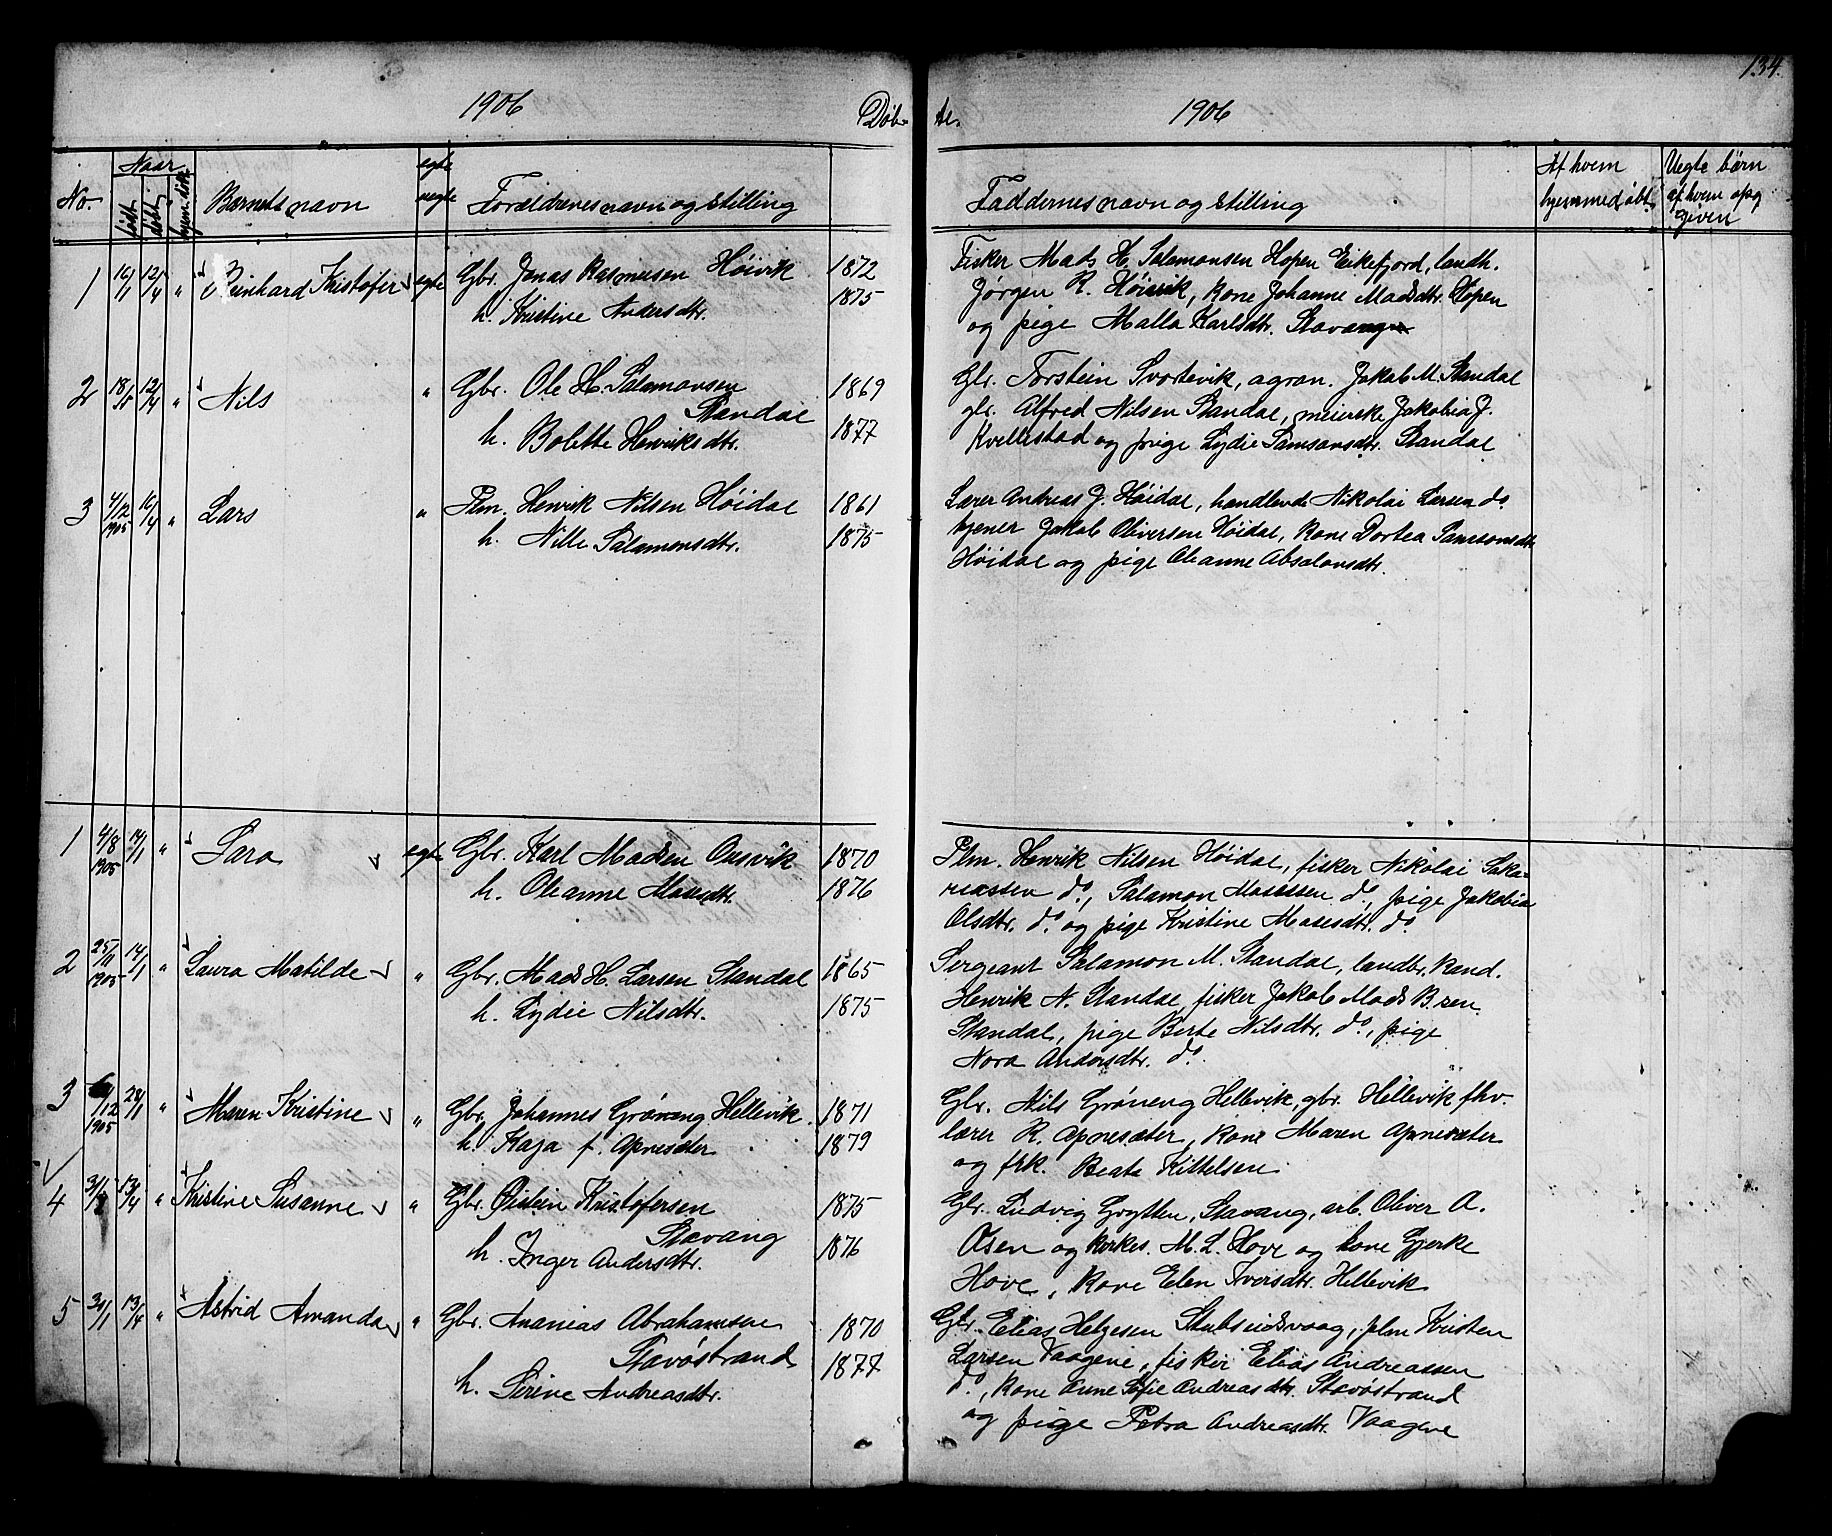 134.
1906 Døb- te. 1906
No. Naar født døbt hjem. døbt Barnets navn egte uegte Forældrenes navn og stilling Faddernes navn og stilling Af hvem hjemmedøbt Uegte børn af hvem opgiven
1 16/1 12/4 " Reinhard Kristofer egte Gbr. Jonas Rasmussen Høivik 1872
h. Kristine Andersdtr. 1875
Fisker Mads H. Salamonsen Hopen Eikefjord, landh.
Jørgen R. Høivik, kone Johanne Madsdtr. Hopen
og pige Malla Karlsdtr. Stavang
2 18/10 12/4 " Nils " Gbr. Ole H. Salamonsen 1869
Standal
h. Bolette Henriksdtr. 1877
Gbr. Torstein Svortevik, agron. Jakob M. Standal
gbr. Alfred Nilsen Standal, meierske Jakobia J.
Kvellestad og pige Lydie Samsonsdtr. Standal
3 4/12 1905 16/4 " Lars " Plm. Henrik Nilsen Høidal 1861
h. Nille Salamonsdtr. 1875
Lærer Andreas J. Høidal, handlende Nikolai Larsen do
tjener Jakob Oliversen Høidal, kone Dortea Samsonsdtr
Høidal og pige Oleanne Absalonsdtr.
1 4/8 1905 14/1 " Sara egte Gbr. Karl Madsen Ousvik 1870
h. Oleanne Mosesdtr. 1876
Plm. Henrik Nilsen Høidal, fisker Nikolai Saka-
riassen do, Salamon Mosessen do, pige Jakobia
Olsdtr. do og pige Kristine Mosesdtr. do
2 25/11 1905 14/1 " Laura Matilde " Gbr. Mads H. Larsen Standal 1865
h. Lydie Nilsdtr. 1875
Sergeant Salamon M. Standal, landbr. kand.
Henrik N. Standal, fisker Jakob Mads B.sen
Standal, pige Berte Nilsdtr. do, pige
Nora Andersdtr. do
3 /12 1905 28/1 " Maren Kristine " Gbr. Johannes Grøneng Hellevik. 1871
h. Kaja f. Apnesæter 1879
Gbr. Nils Grøneng Hellevik, gbr. Hellevik fhv.
lærer R. Apnesæter, kone Maren Apnesæter
og frk. Beata Kittelsen
4 31/1 13/4 " Kristine Susanne " Gbr. Øistein Kristofersen 1875
Stavang
h. Inger Andersdtr. 1876
Gbr. Ludvig Grytten, Stavang, arb. Oliver A.
Osen og kirkes. M. L. Hove og kone Gjerke
Hove, kone Elen Iversdtr. Hellevik
5 30/1 13/4 " Astrid Amanda " Gbr. Ananias Abrahamsen 1870
Stavøstrand
h. Serine Andreasdtr. 1877
Gbr. Elias Helgesen Stubseidsvaag, plm Kristen
Larsen Vaagene, fisker Elias Andreassen
do, kone Anne Sofie Andreasdtr. Stavøstrand
og pige Petra Andreasdtr. Vaagene